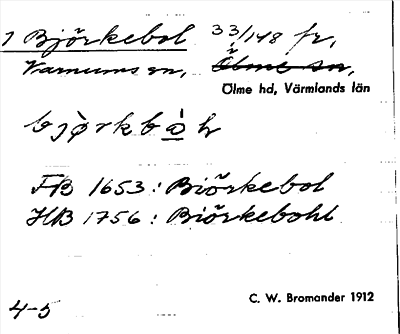 1 Björkebol 33/148 fr,
Varnums sn, Ölme sn,
Ölme hd, Värmlands län
bjørkbòh
FB 1653: Biörkebol
HB 1756: Biörkebohl
4-5 C. W. Bromander 1912